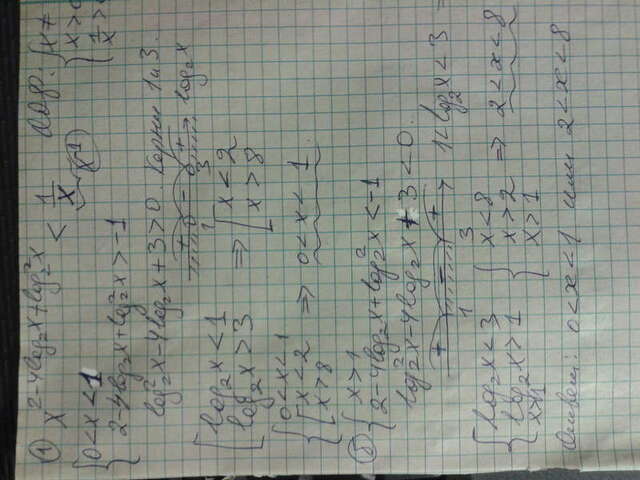 ① x^(2-4log₂x+log₂²x) < 1/x (x⁻¹) ООФ: { x ≠
{ x > 0
1/x > 0
{ 0<x<1
{ 2-4log₂x+log₂²x > -1
log₂²x-4log₂x+3>0. Корни 1 и 3.
+ - +
1 3 log₂x
[ log₂x < 1
[ log₂x > 3 ⇒ [ x < 2
[ x > 8
{ 0<x<1
{ [ x<2
[ x>8 ⇒ 0<x<1.
② { x>1
{ 2-4log₂x+log₂²x < -1
log₂²x-4log₂x+3<0.
+ - +
1 3 1<log₂x<3
{ log₂x<3
{ log₂x>1
{ x>1
{ x<8
{ x>2
{ x>1 ⇒ 2<x<8
Ответ: 0<x<1 или 2<x<8